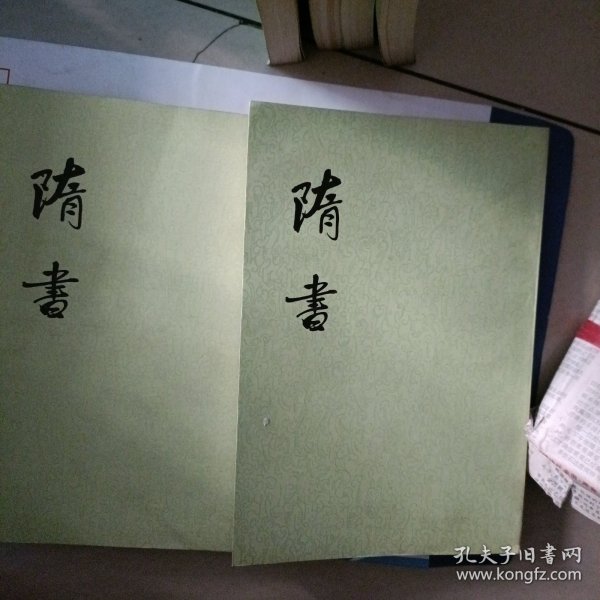 隋書
隋書
孔夫子旧書网
www.kongfz.com